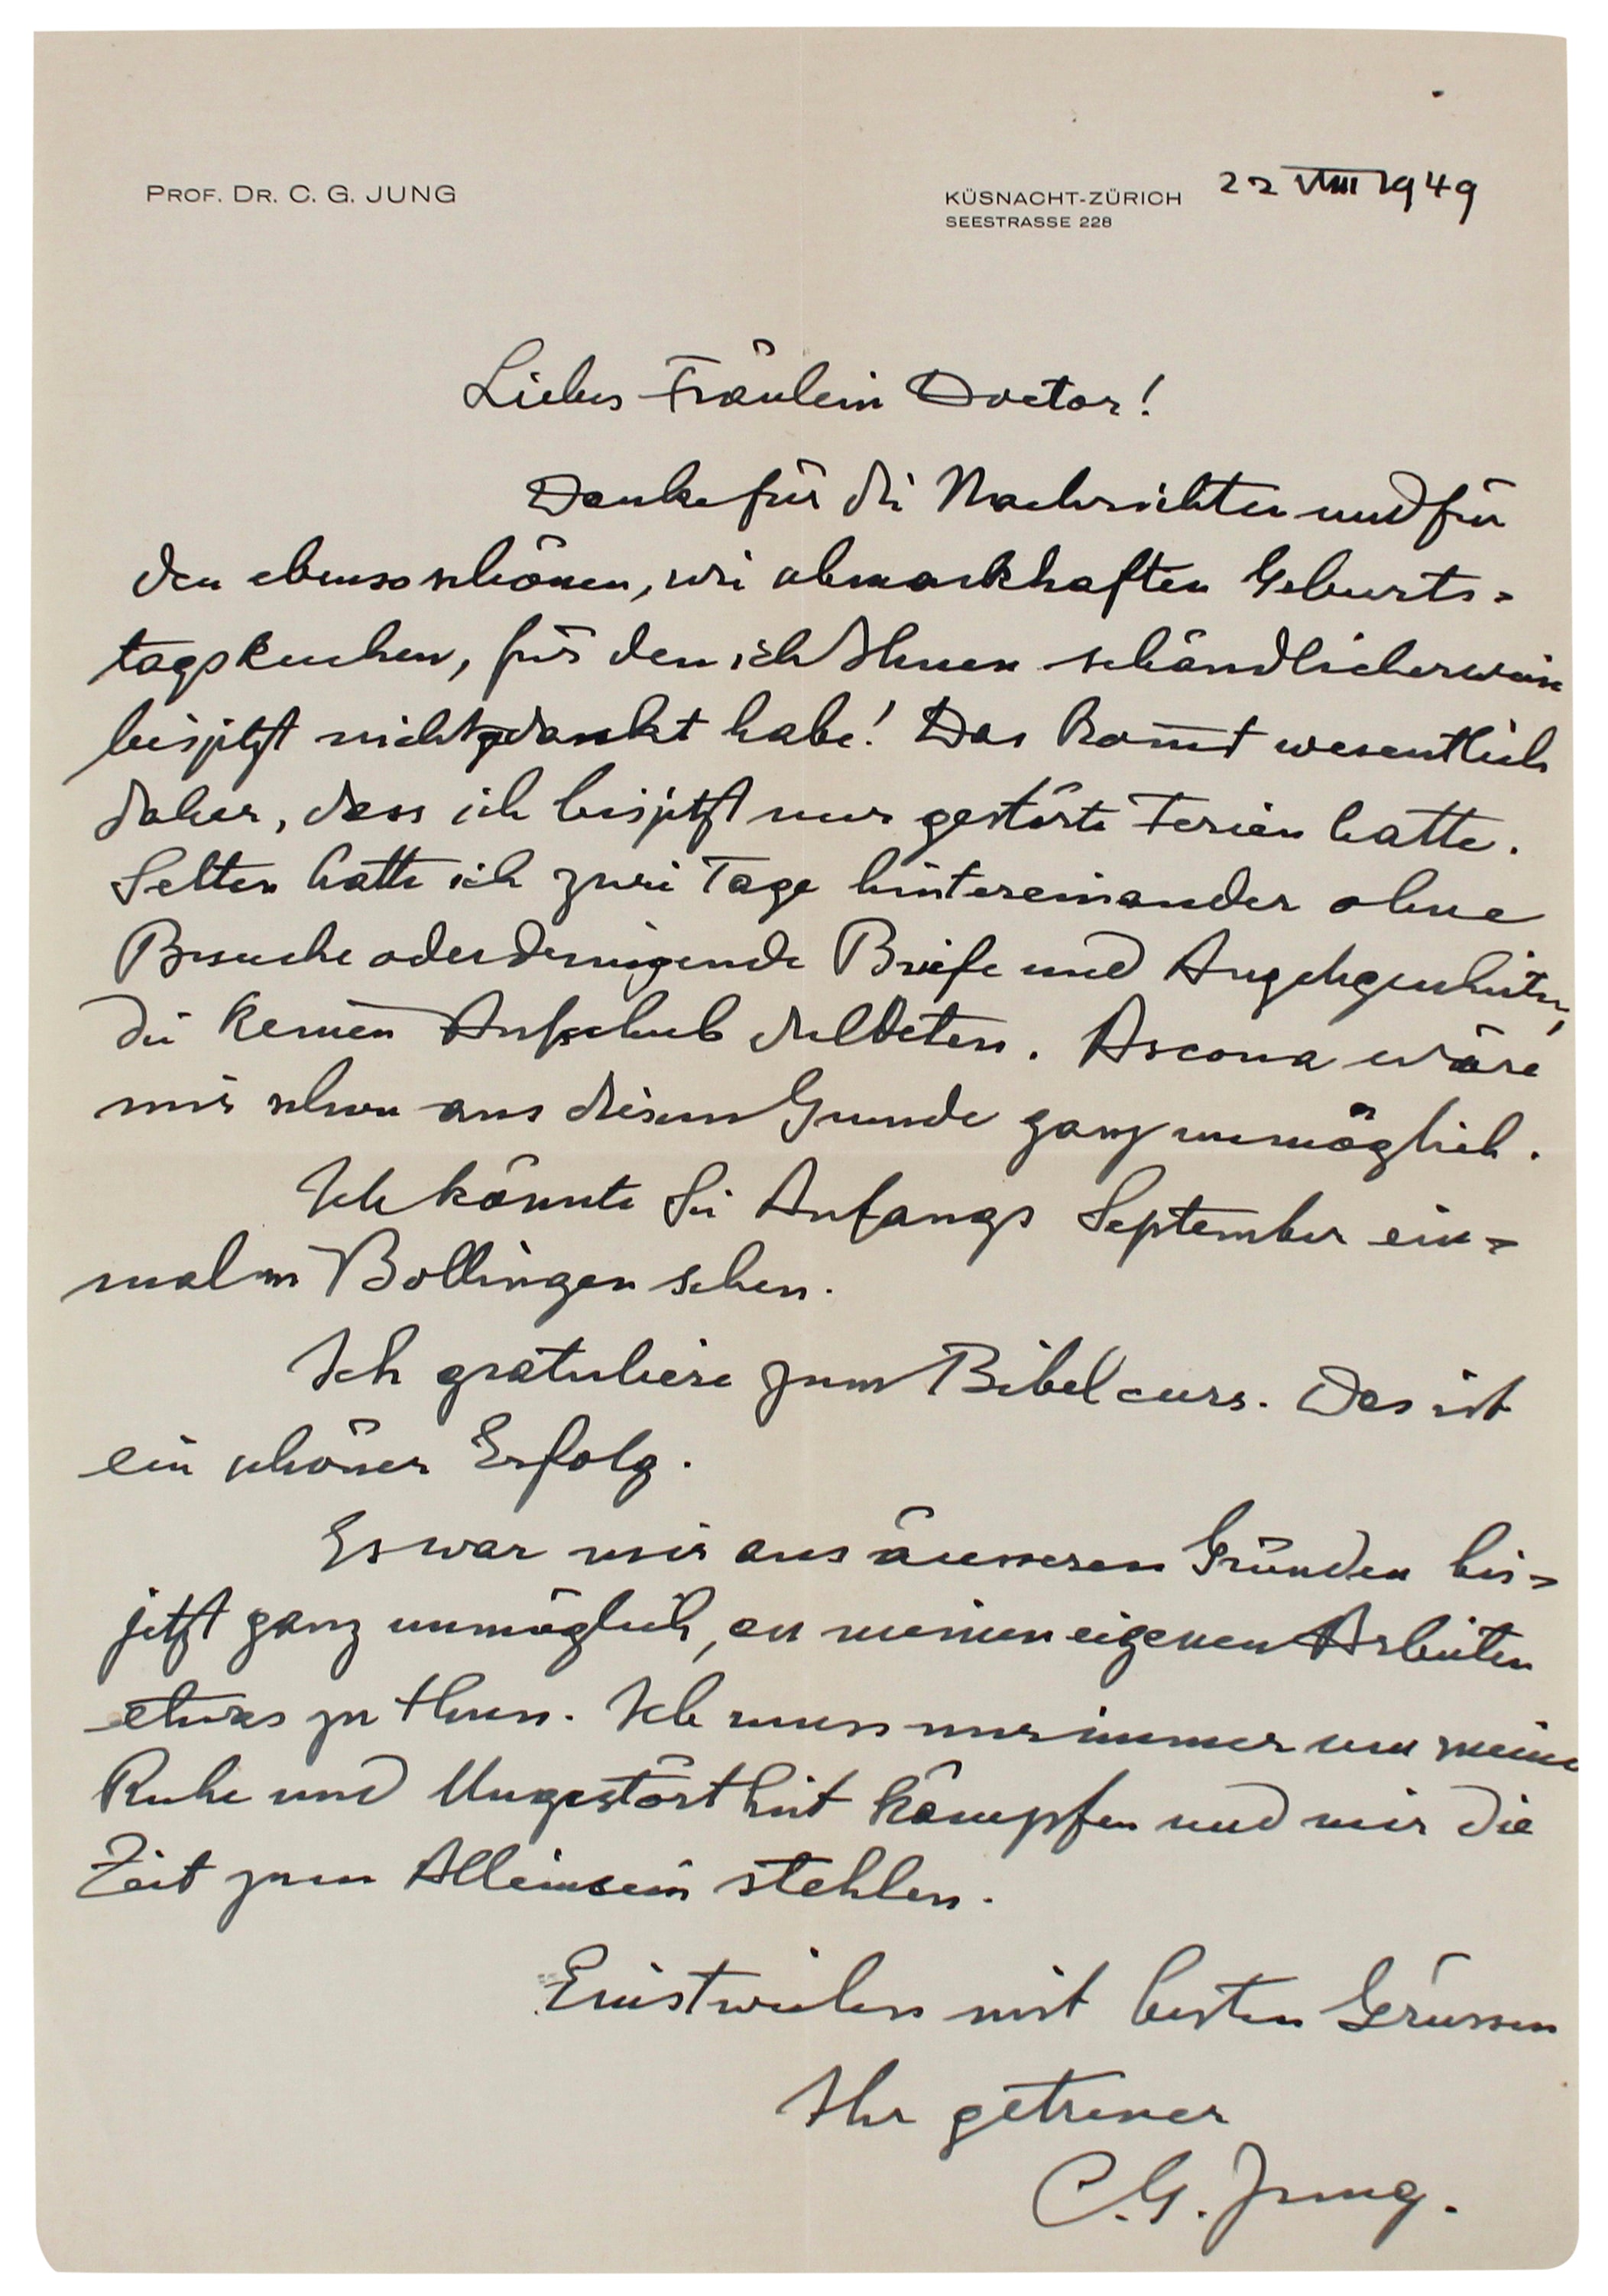 PROF. DR. C. G. JUNG
KÜSNACHT-ZÜRICH
SEESTRASSE 228
22 VIII 1949
Liebes Fräulein Doctor!
Danke für die Nachrichten und für
den ebenso schönen, wie schmackhaften Geburts=
tagskuchen, für den ich Ihnen schändlicherweise
bis jetzt nicht gedankt habe! Das kom̄t wesentlich
daher, dass ich bis jetzt nur gestörte Ferien hatte.
Selten hatte ich zwei Tage hintereinander ohne
Besuche oder dringende Briefe und Angelegenheiten,
die keinen Aufschub duldeten. Ascona wäre
mir schon aus diesem Grunde ganz unmöglich.
Ich könnte Sie Anfangs September ein=
mal in Bollingen sehen.
Ich gratuliere zum Bibelcurs. Das ist
ein schöner Erfolg.
Es war mir aus äusseren Gründen bis=
jetzt ganz unmöglich, an meinen eigenen Arbeiten
etwas zu thun. Ich muss nur immer um meine
Ruhe und Ungestörtheit kämpfen und mir die
Zeit zum Alleinsein stehlen.
Einstweilen mit besten Grüssen
Ihr getreuer
C. G. Jung.